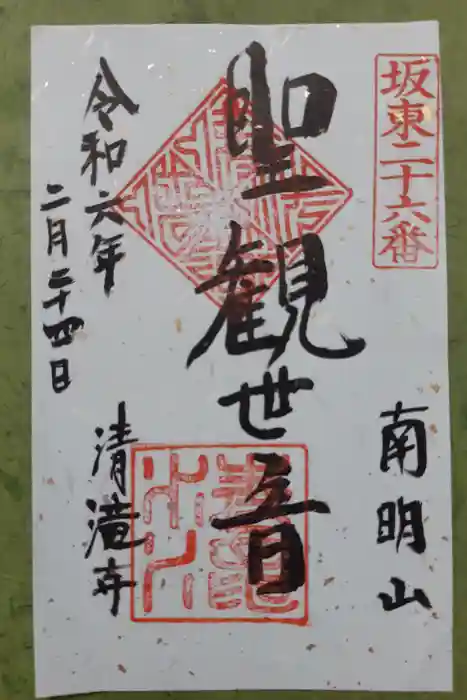 坂東二十六番
南明山
聖観世音
令和六年
二月二十四日
清滝寺